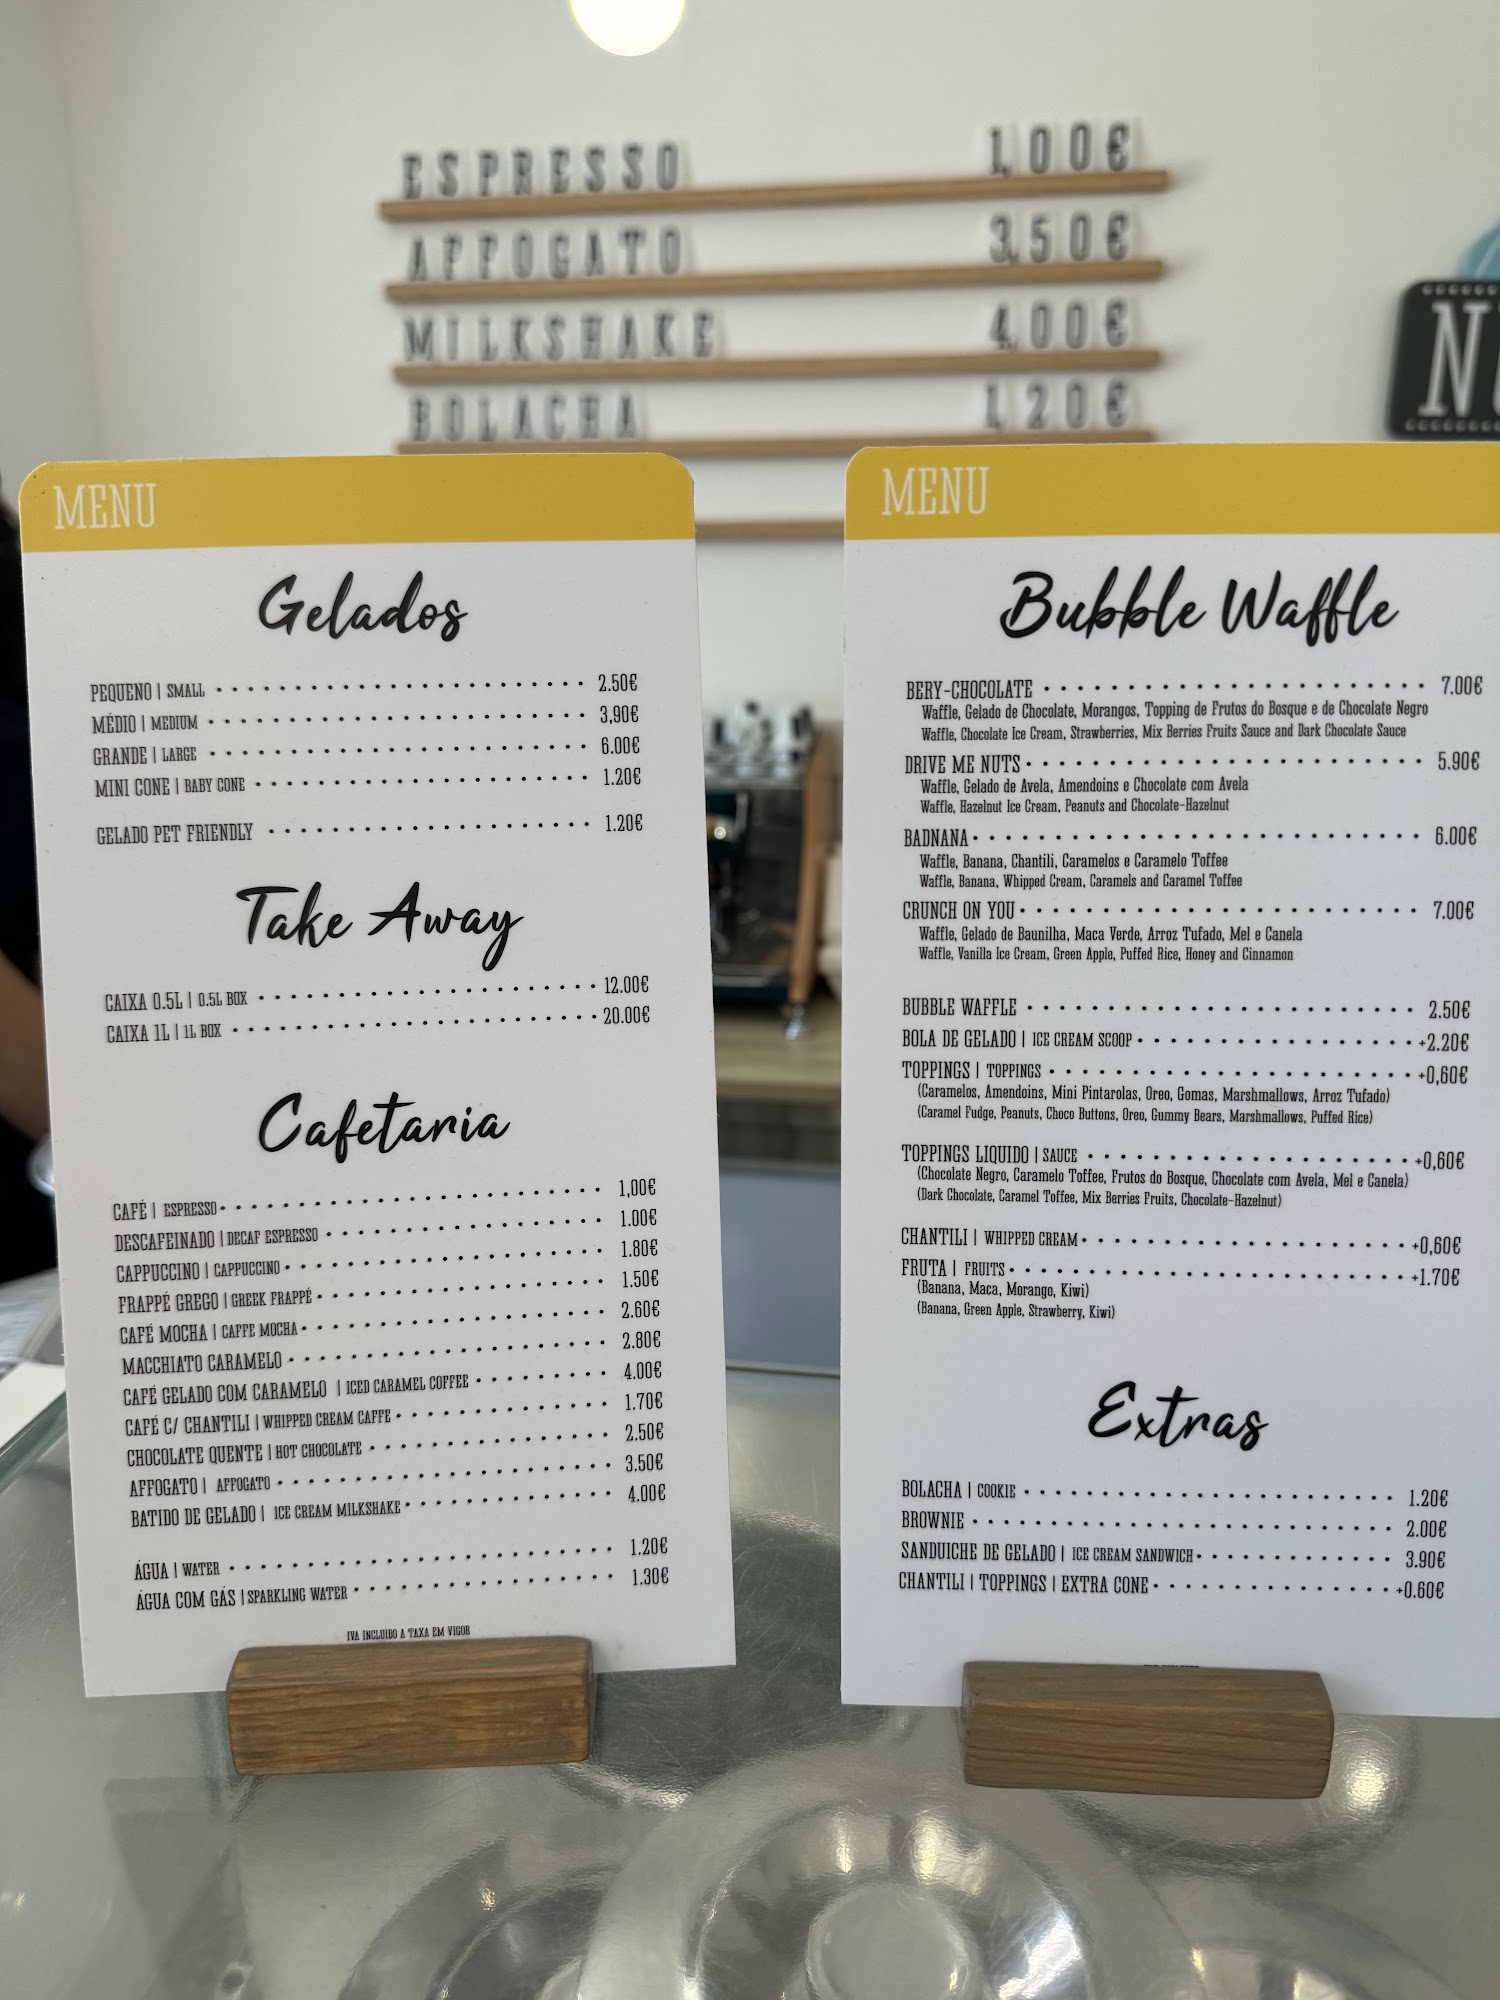 ESPRESSO 1,00€
AFFOGATO 3,50€
MILKSHAKE 4,00€
BOLACHA 1,20€
MENU
Gelados
PEQUENO | SMALL 2.50€
MÉDIO | MEDIUM 3,90€
GRANDE | LARGE 6.00€
MINI CONE | BABY CONE 1.20€
GELADO PET FRIENDLY 1.20€
Take Away
CAIXA 0.5L | 0.5L BOX 12.00€
CAIXA 1L | 1L BOX 20.00€
Cafetaria
CAFÉ | ESPRESSO 1,00€
DESCAFEINADO | DECAF ESPRESSO 1.00€
CAPPUCCINO | CAPPUCCINO 1.80€
FRAPPÉ GREGO | GREEK FRAPPÉ 1.50€
CAFÉ MOCHA | CAFFE MOCHA 2.60€
MACCHIATO CARAMELO 2.80€
CAFÉ GELADO COM CARAMELO | ICED CARAMEL COFFEE 4.00€
CAFÉ C/ CHANTILI | WHIPPED CREAM CAFFE 1.70€
CHOCOLATE QUENTE | HOT CHOCOLATE 2.50€
AFFOGATO | AFFOGATO 3.50€
BATIDO DE GELADO | ICE CREAM MILKSHAKE 4.00€
ÁGUA | WATER 1.20€
ÁGUA COM GÁS | SPARKLING WATER 1.30€
IVA INCLUIDO A TAXA EM VIGOR
MENU
Bubble Waffle
BERY-CHOCOLATE 7.00€
Waffle, Gelado de Chocolate, Morangos, Topping de Frutos do Bosque e de Chocolate Negro
Waffle, Chocolate Ice Cream, Strawberries, Mix Berries Fruits Sauce and Dark Chocolate Sauce
DRIVE ME NUTS 5.90€
Waffle, Gelado de Avela, Amendoins e Chocolate com Avela
Waffle, Hazelnut Ice Cream, Peanuts and Chocolate-Hazelnut
BADNANA 6.00€
Waffle, Banana, Chantili, Caramelos e Caramelo Toffee
Waffle, Banana, Whipped Cream, Caramels and Caramel Toffee
CRUNCH ON YOU 7.00€
Waffle, Gelado de Baunilha, Maca Verde, Arroz Tufado, Mel e Canela
Waffle, Vanilla Ice Cream, Green Apple, Puffed Rice, Honey and Cinnamon
BUBBLE WAFFLE 2.50€
BOLA DE GELADO | ICE CREAM SCOOP +2.20€
TOPPINGS | TOPPINGS +0,60€
(Caramelos, Amendoins, Mini Pintarolas, Oreo, Gomas, Marshmallows, Arroz Tufado)
(Caramel Fudge, Peanuts, Choco Buttons, Oreo, Gummy Bears, Marshmallows, Puffed Rice)
TOPPINGS LIQUIDO | SAUCE +0,60€
(Chocolate Negro, Caramelo Toffee, Frutos do Bosque, Chocolate com Avela, Mel e Canela)
(Dark Chocolate, Caramel Toffee, Mix Berries Fruits, Chocolate-Hazelnut)
CHANTILI | WHIPPED CREAM +0,60€
FRUTA | FRUITS +1.70€
(Banana, Maca, Morango, Kiwi)
(Banana, Green Apple, Strawberry, Kiwi)
Extras
BOLACHA | COOKIE 1.20€
BROWNIE 2.00€
SANDUICHE DE GELADO | ICE CREAM SANDWICH 3.90€
CHANTILI | TOPPINGS | EXTRA CONE +0.60€